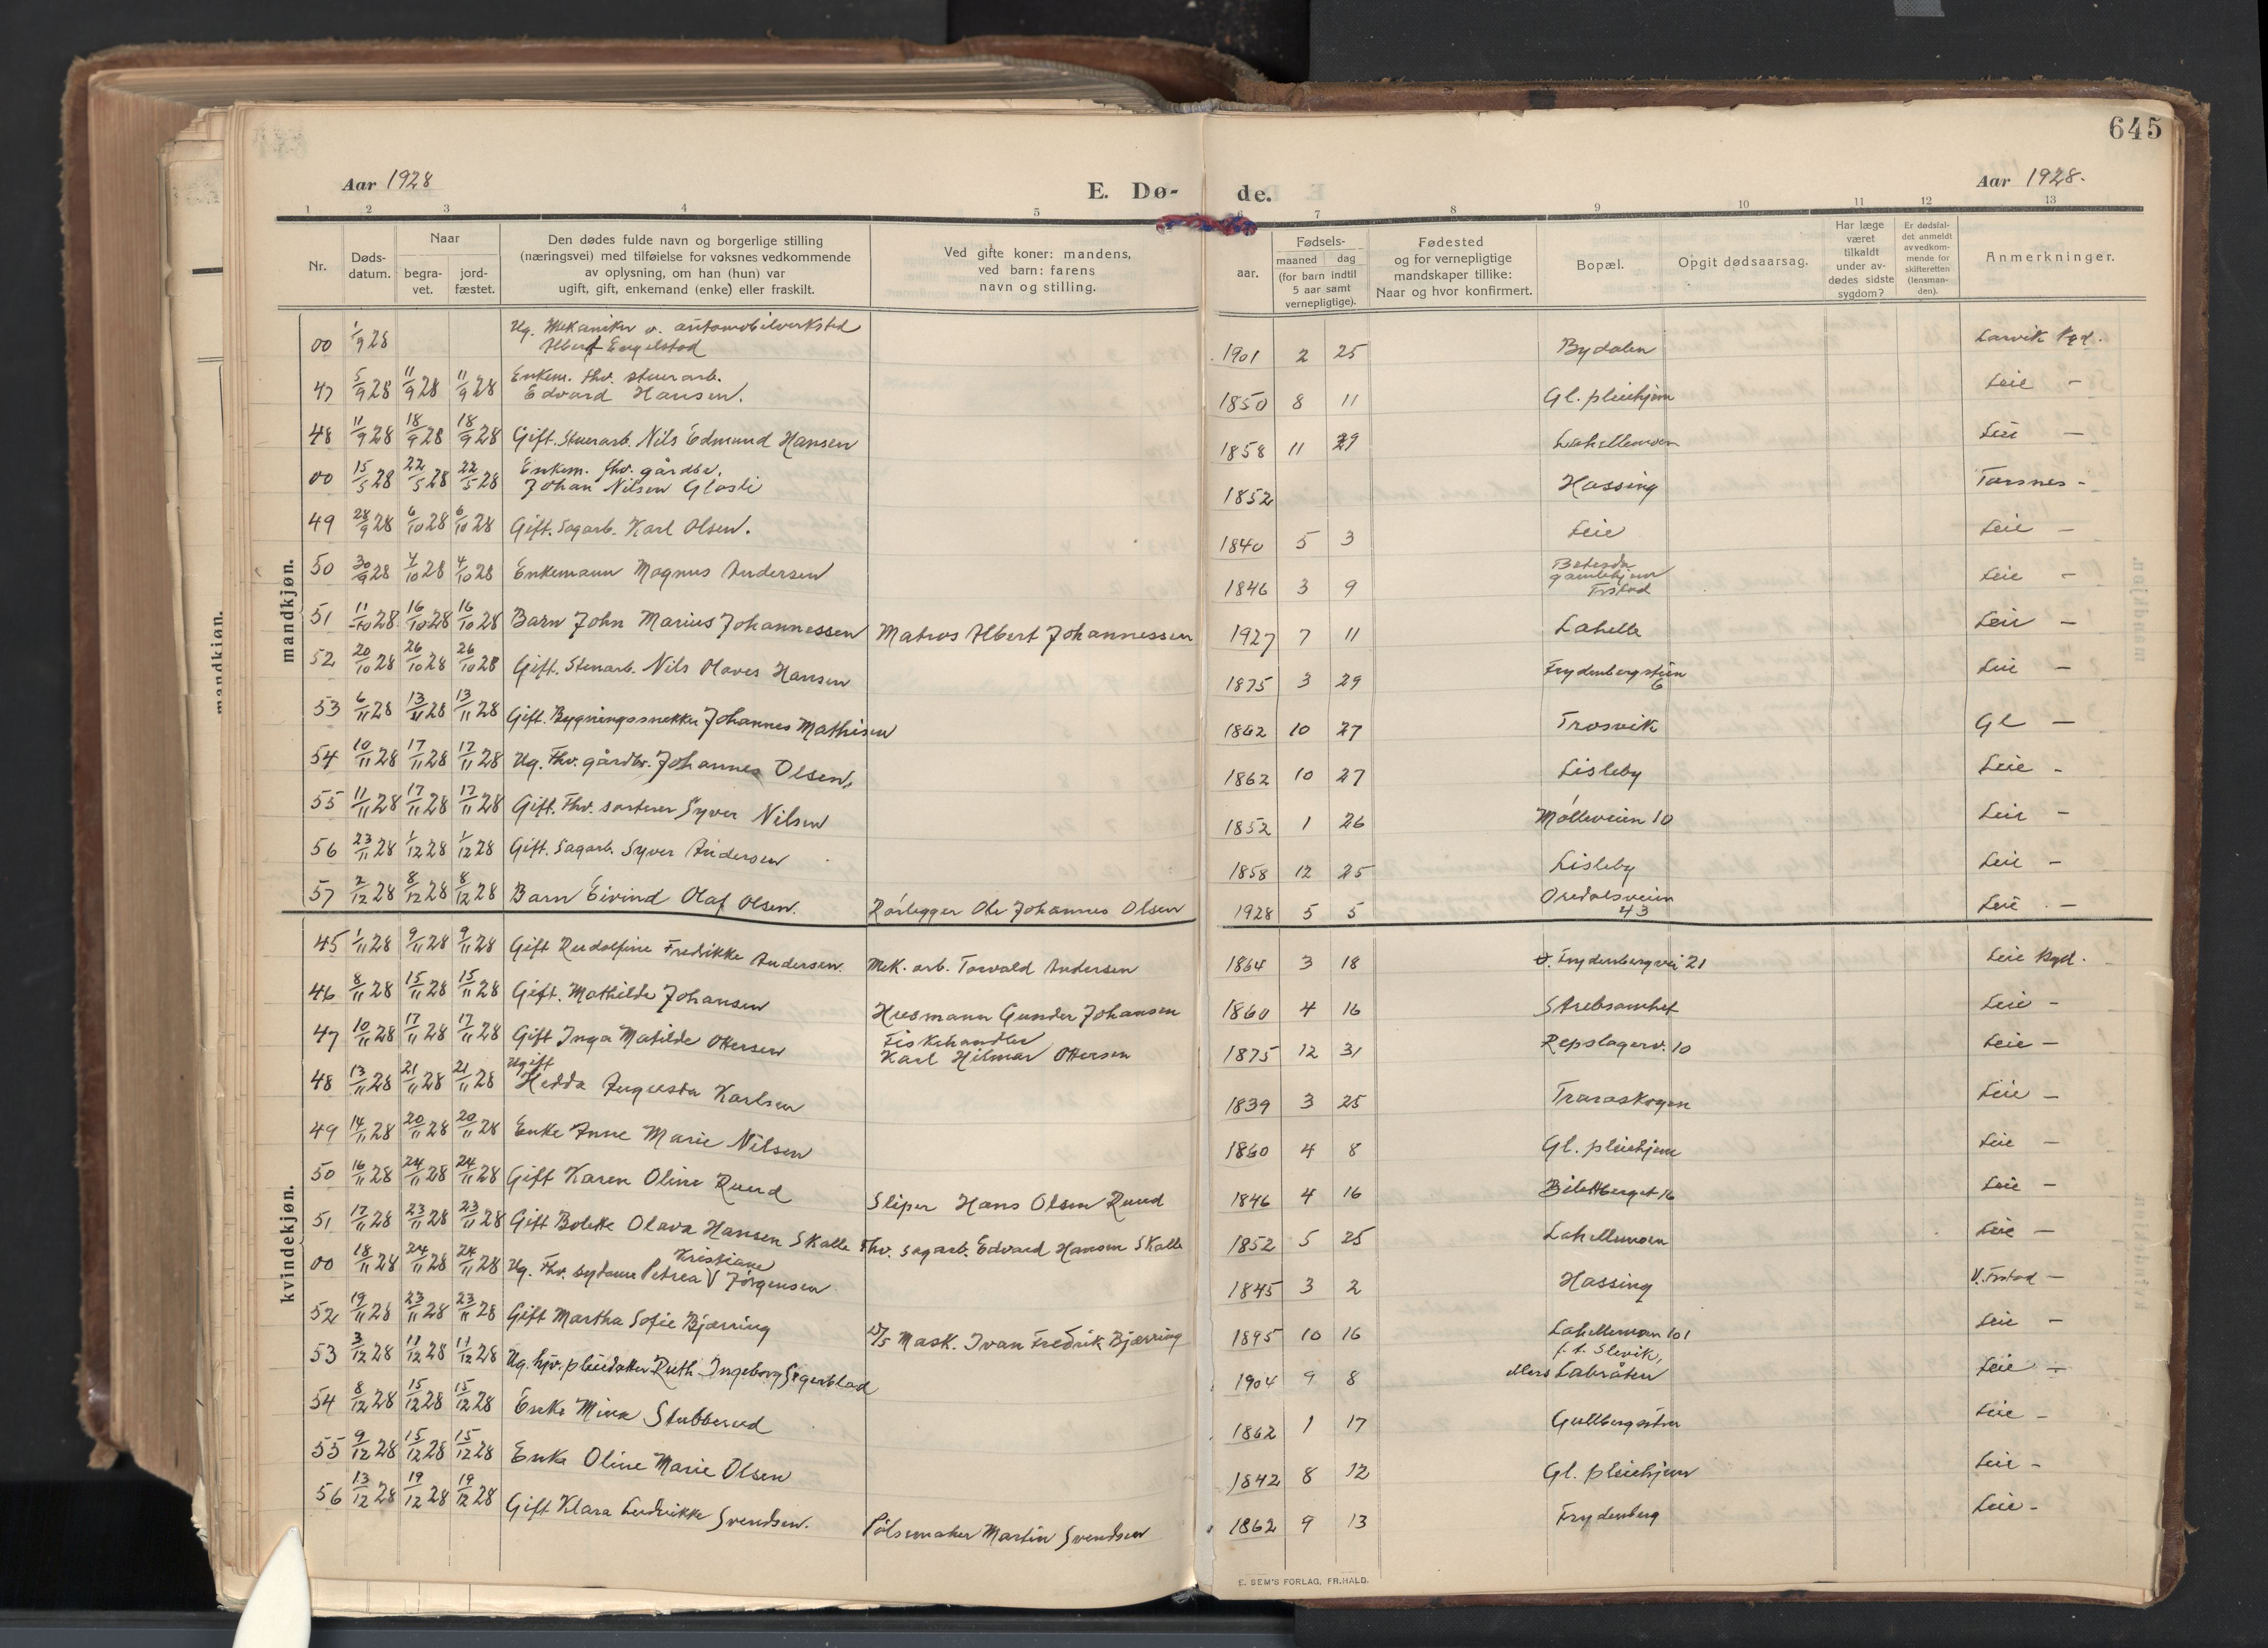 645
Aar 1928
E. Dø-
de.
Aar 1928.
1 2 3 4 5 6 7 8 9 10 11 12 13
Nr.
Døds-
datum.
Naar
begra-
vet.
jord-
fæstet.
Den dødes fulde navn og borgerlige stilling
(næringsvei) med tilføielse for voksnes vedkommende
av oplysning, om han (hun) var
ugift, gift, enkemand (enke) eller fraskilt.
Ved gifte koner: mandens,
ved barn: farens
navn og stilling.
Fødsels-
aar.
maaned dag
(for barn indtil
5 aar samt
vernepligtige).
Fødested
og for vernepligtige
mandskaper tillike:
Naar og hvor konfirmert.
Bopæl.
Opgit dødsaarsag.
Har læge
været
tilkaldt
under av-
dødes sidste
sygdom?
Er dødsfal-
det anmeldt
av vedkom-
mende for
skifteretten
(lensman-
den).
Anmerkninger.
mandkjøn.
00 1/9 28 Ug. Mekaniker v. automobilverksted
Albert Engelstad 1901 2 25 Bydalen Larvik Kgd.
47 5/9 28 11/9 28 11/9 28 Enkem. fhv. stuerarb.
Edvard Hansen. 1850 8 11 Gl. pleiehjem Leie —
48 11/9 28 18/9 28 18/9 28 Gift. Stuerarb. Nils Edmund Hansen 1858 11 29 Lahellemoen Leie —
00 15/5 28 22/5 28 22/5 28 Enkem. fhv. gårdbr.
Johan Nilsen Glosli 1852 Hassing Torsnes -
49 28/9 28 6/10 28 6/10 28 Gift. Sagarb. Karl Olsen. 1840 5 3 Leie Leie —
50 30/9 28 4/10 28 4/10 28 Enkemann Magnus Andersen 1846 3 9 Betesda
gamlehjem
Frstad Leie -
51 11/10 28 16/10 28 16/10 28 Barn John Marius Johannessen Matros Albert Johannessen 1927 7 11 Lahelle Leie —
52 20/10 28 26/10 28 26/10 28 Gift. Stenarb. Nils Olaves Hansen 1875 3 29 Frydenbergstien
6 Leie —
53 6/11 28 13/11 28 13/11 28 Gift. Bygningssnekker Johannes Mathisen 1862 10 27 Trosvik Gl —
54 10/11 28 17/11 28 17/11 28 Ug. Fhv. gårdbr. Johannes Olsen. 1862 10 27 Lisleby Leie -
55 11/11 28 17/11 28 17/11 28 Gift. Fhv. sorterer Syver Nilsen 1852 1 26 Mølleveien 10 Leie —
56 23/11 28 1/12 28 1/12 28 Gift. Sagarb. Syver Andersen 1858 12 25 Lisleby Leie —
57 2/12 28 8/12 28 8/12 28 Barn Eivind Olaf Olsen. Rørlegger Ole Johannes Olsen 1928 5 5 Oredalsveien
43 Leie —
kvindekjøn.
45 1/11 28 9/11 28 9/11 28 Gift Rudolfine Fredrikke Andersen. Mek. arb. Torvald Andersen 1864 3 18 Ø. Frydenbergvei 21 Leie Kgd.
46 8/11 28 15/11 28 15/11 28 Gift. Mathilde Johansen Husmann Gunder Johansen 1860 4 16 Strebsomhet Leie -
47 10/11 28 17/11 28 17/11 28 Gift Inga Matilde Ottersen Fiskehandler
Karl Hilmar Ottersen 1875 12 31 Repslagerv. 10 Leie —
48 13/11 28 21/11 28 21/11 28 Ugift
Hedda Augusta Karlsen 1839 3 25 Traraskogen Leie —
49 14/11 28 20/11 28 20/11 28 Enke Anne Marie Nilsen 1860 4 8 Gl. pleiehjem Leie —
50 16/11 28 24/11 28 24/11 28 Gift Karen Oline Ruud Sliper Hans Olsen Ruud 1846 4 16 Bilettberget 16 Leie —
51 17/11 28 23/11 28 23/11 28 Gift Bolette Olava Hansen Skalle Fhv. sagarb. Edvard Hansen Skalle 1852 5 25 Lahellemoen Leie —
00 18/11 28 24/11 28 24/11 28 Ug. Fhv. sydame Petrea V Kristiane Jørgensen 1845 3 2 Hassing V. Frstad —
52 19/11 28 23/11 28 23/11 28 Gift Martha Sofie Bjærring D/S Mask. Ivan Fredrik Bjærring 1895 10 16 Lahellemoen 101 Leie —
53 3/12 28 11/12 28 11/12 28 Ug. hjv. pleiedatter Ruth Ingeborg Segerblad 1904 9 8 f. t. Slevik,
ellers Labråten Leie —
54 8/12 28 15/12 28 15/12 28 Enke Mina Stubberud 1862 1 17 Gullbergsstien Leie -
55 9/12 28 15/12 28 15/12 28 Enke Oline Marie Olsen 1842 8 12 Gl. pleiehjem Leie -
56 13/12 28 19/12 28 19/12 28 Gift Klara Fredrikke Svendsen. Pølsemaker Martin Svendsen 1862 9 13 Frydenberg Leie -
E. SEM'S FORLAG, FR.HALD.